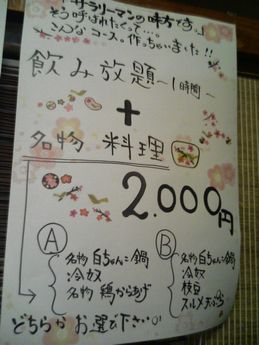 「サラリーマンの味方です。」
そう呼ばれたくって…。
こんなコース。作っちゃいました!!
飲み放題 ~1時間~
+
名物 料理
2.000円
Ⓐ
名物 白ちゃんこ鍋
冷奴
名物 鶏からあげ
Ⓑ
名物 白ちゃんこ鍋
冷奴
枝豆
スルメ天ぷら
どちらか お選び下さい